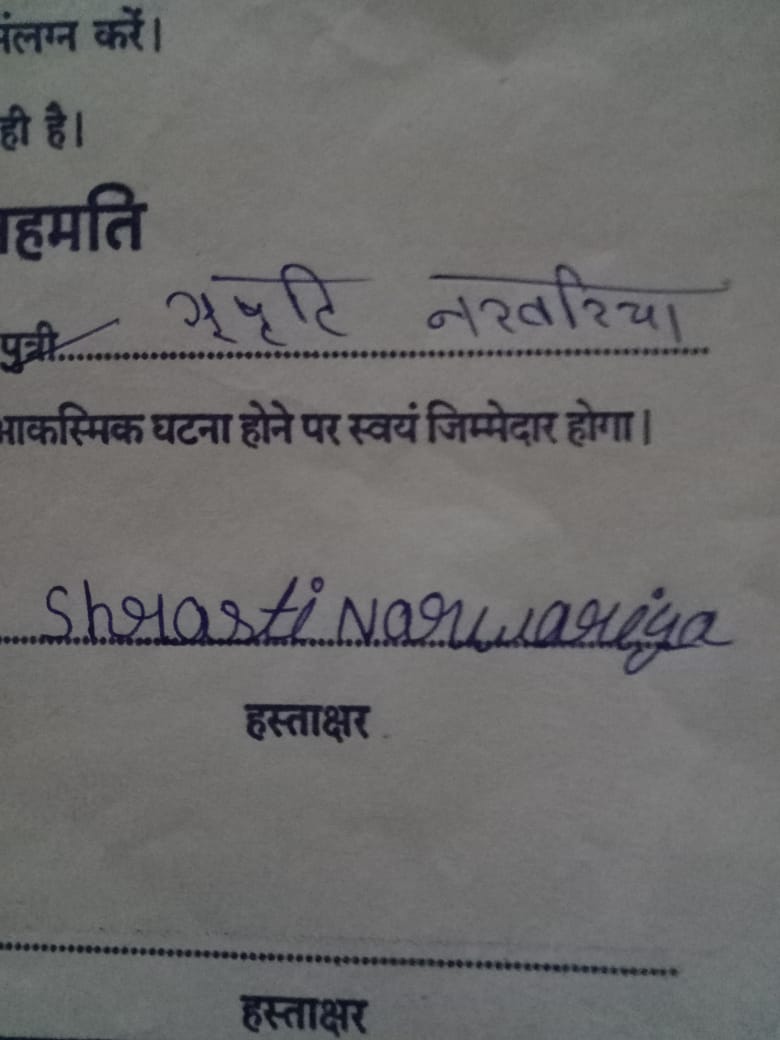 संलग्न करें।
ही है।
हमति
पुत्री............ सृष्टि नरवरिया
आकस्मिक घटना होने पर स्वयं जिम्मेदार होगा।
Shrasti Narwariya
हस्ताक्षर
हस्ताक्षर